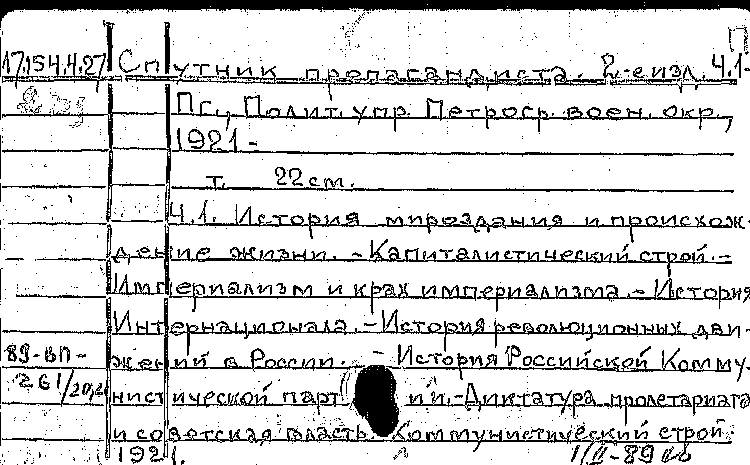 П
17.154.4.27 Спутник пропагандиста. 2-е изд. Ч.1-
2 экз
Пг., Полит. упр. Петрогр. воен. окр.,
1921-
т. 22 см.
Ч.1. История мироздания и происхож-
дение жизни. - Капиталистический строй. -
Империализм и крах империализма. - История
Интернационала. - История революционных дви-
89-вп- жений в России. - История Российской Комму-
261/20,21 нистической парт ии. - Диктатура пролетариата
и советская власть. Коммунистический строй.
1921.